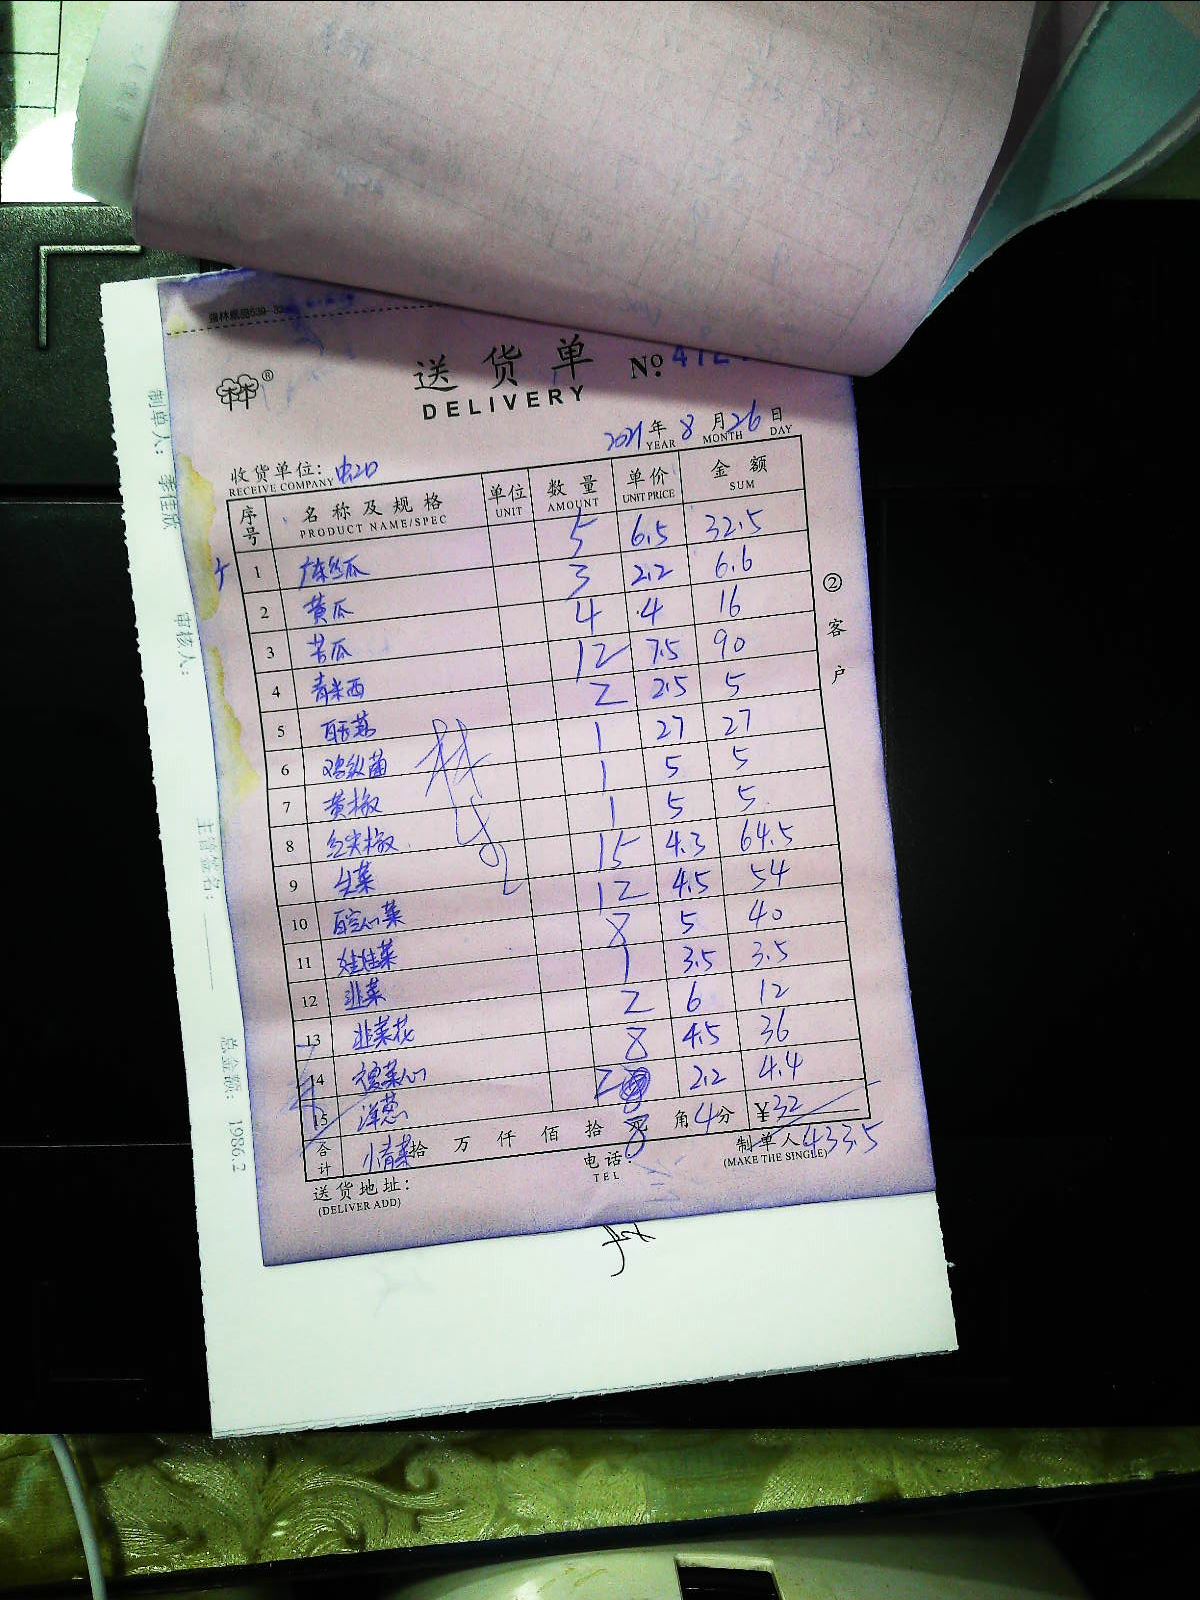 送货单 Nº 412
DELIVERY
2021年 8月 26日
YEAR MONTH DAY
收货单位:
RECEIVE COMPANY
序号 名称及规格 单位 数量 单价 金额
PRODUCT NAME/SPEC UNIT AMOUNT UNIT PRICE SUM
1 广东丝瓜 5 6.5 32.5
2 黄瓜 3 2.2 6.6
3 苦瓜 4 4 16
4 青米西 12 7.5 90
5 2 2.5 5
6 鸡纵菌 1 27 27
7 黄椒 1 5 5
8 红尖椒 1 5 5
9 生菜 15 4.3 64.5
10 白空心菜 12 4.5 54
11 娃娃菜 8 5 40
12 韭菜 1 3.5 3.5
13 韭菜花 2 6 12
14 菜心 8 4.5 36
15 洋葱 2 2.2 4.4
合计 小青菜 拾万仟佰拾 8 角 4 分 ¥32
电话: 制单人 433.5
TEL (MAKE THE SINGLE)
送货地址:
(DELIVER ADD)
② 客户
制单人: 李佳欣
审核人:
主管签名:
总金额: 1986.2